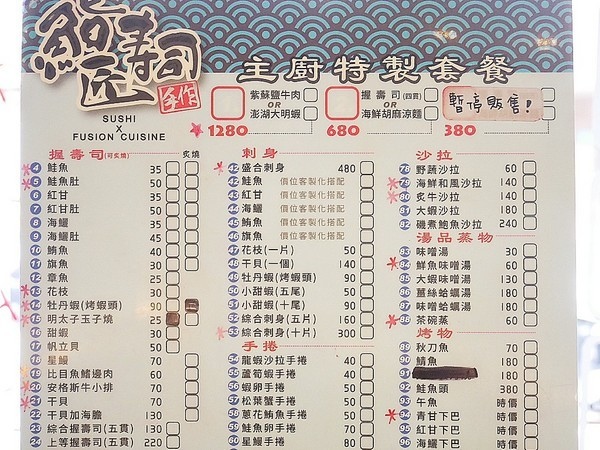 鮨匠壽司
手作
SUSHI
X
FUSION CUISINE
主廚特製套餐
紫蘇鹽牛肉
OR
澎湖大明蝦
1280
握壽司(四貫)
OR
海鮮胡麻涼麵
680
暫停販售!
380
握壽司(可炙燒) 炙燒
4 鮭魚 35
5 鮭魚肚 50
6 紅甘 35
7 紅甘肚 50
8 海鱺 35
9 海鱺肚 45
10 鮪魚 40
11 旗魚 30
12 章魚 25
13 花枝 30
14 牡丹蝦(烤蝦頭) 90
15 明太子玉子燒 25
16 甜蝦 30
17 帆立貝 50
18 星鰻 70
19 比目魚鰭邊肉 60
20 安格斯牛小排 70
21 干貝 70
22 干貝加海膽 130
23 綜合握壽司(五貫) 130
24 上等握壽司(五貫) 220
刺身
42 盛合刺身 480
42 鮭魚 價位客製化搭配
43 紅甘 價位客製化搭配
44 海鱺 價位客製化搭配
45 鮪魚 價位客製化搭配
46 旗魚 價位客製化搭配
47 花枝(一片) 50
48 干貝(一個) 140
49 牡丹蝦(烤蝦頭) 90
50 小甜蝦(五尾) 50
51 小甜蝦(十尾) 90
52 綜合刺身(五片) 160
53 綜合刺身(十片) 300
手捲
54 龍蝦沙拉手捲 40
55 蘆筍蝦手捲 40
56 蝦卵手捲 50
57 松葉蟹手捲 50
58 蔥花鮪魚手捲 50
59 鮭魚卵手捲 70
60 星鰻手捲 80
沙拉
78 野蔬沙拉 60
79 海鮮和風沙拉 140
80 炙牛沙拉 140
81 大蝦沙拉 180
82 磯煮鮑魚沙拉 240
湯品蒸物
83 味噌湯 30
84 鮮魚味噌湯 60
85 大蝦味噌湯 130
86 薑絲蛤蠣湯 180
87 味噌蛤蠣湯 180
88 茶碗蒸 60
烤物
89 秋刀魚 70
90 鯖魚 180
91 180
92 鮭魚頭 380
93 午魚 時價
94 青甘下巴 時價
95 紅甘下巴 時價
96 海鱺下巴 時價